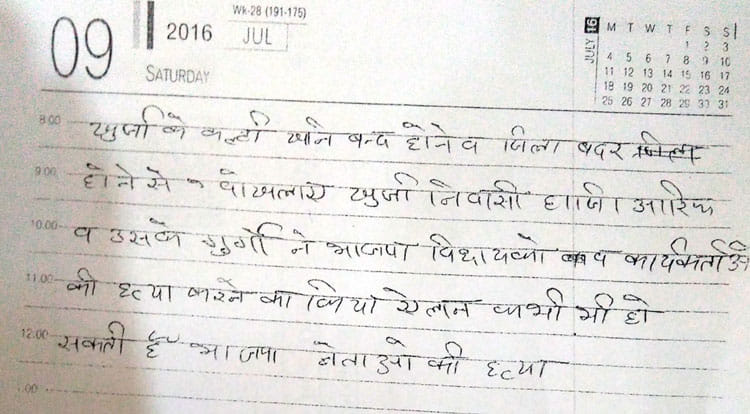 09
2016
Wk-28 (191-175)
JUL
SATURDAY
JULY 16
M T W T F S S
1 2 3
4 5 6 7 8 9 10
11 12 13 14 15 16 17
18 19 20 21 22 23 24
25 26 27 28 29 30 31
8.00 खुर्जा के कट्टी खाने बन्द होने व जिला बदर
9.00 होने से वोखलाए खुर्जा निवासी हाजी आरिफ
10.00 व उसके गुर्गो ने भाजपा विधायको व कार्यकर्ताओ
11.00 की हत्या करने का किया ऐलान कभी भी हो
12.00 सकती है भाजपा नेताओ की हत्या
1.00